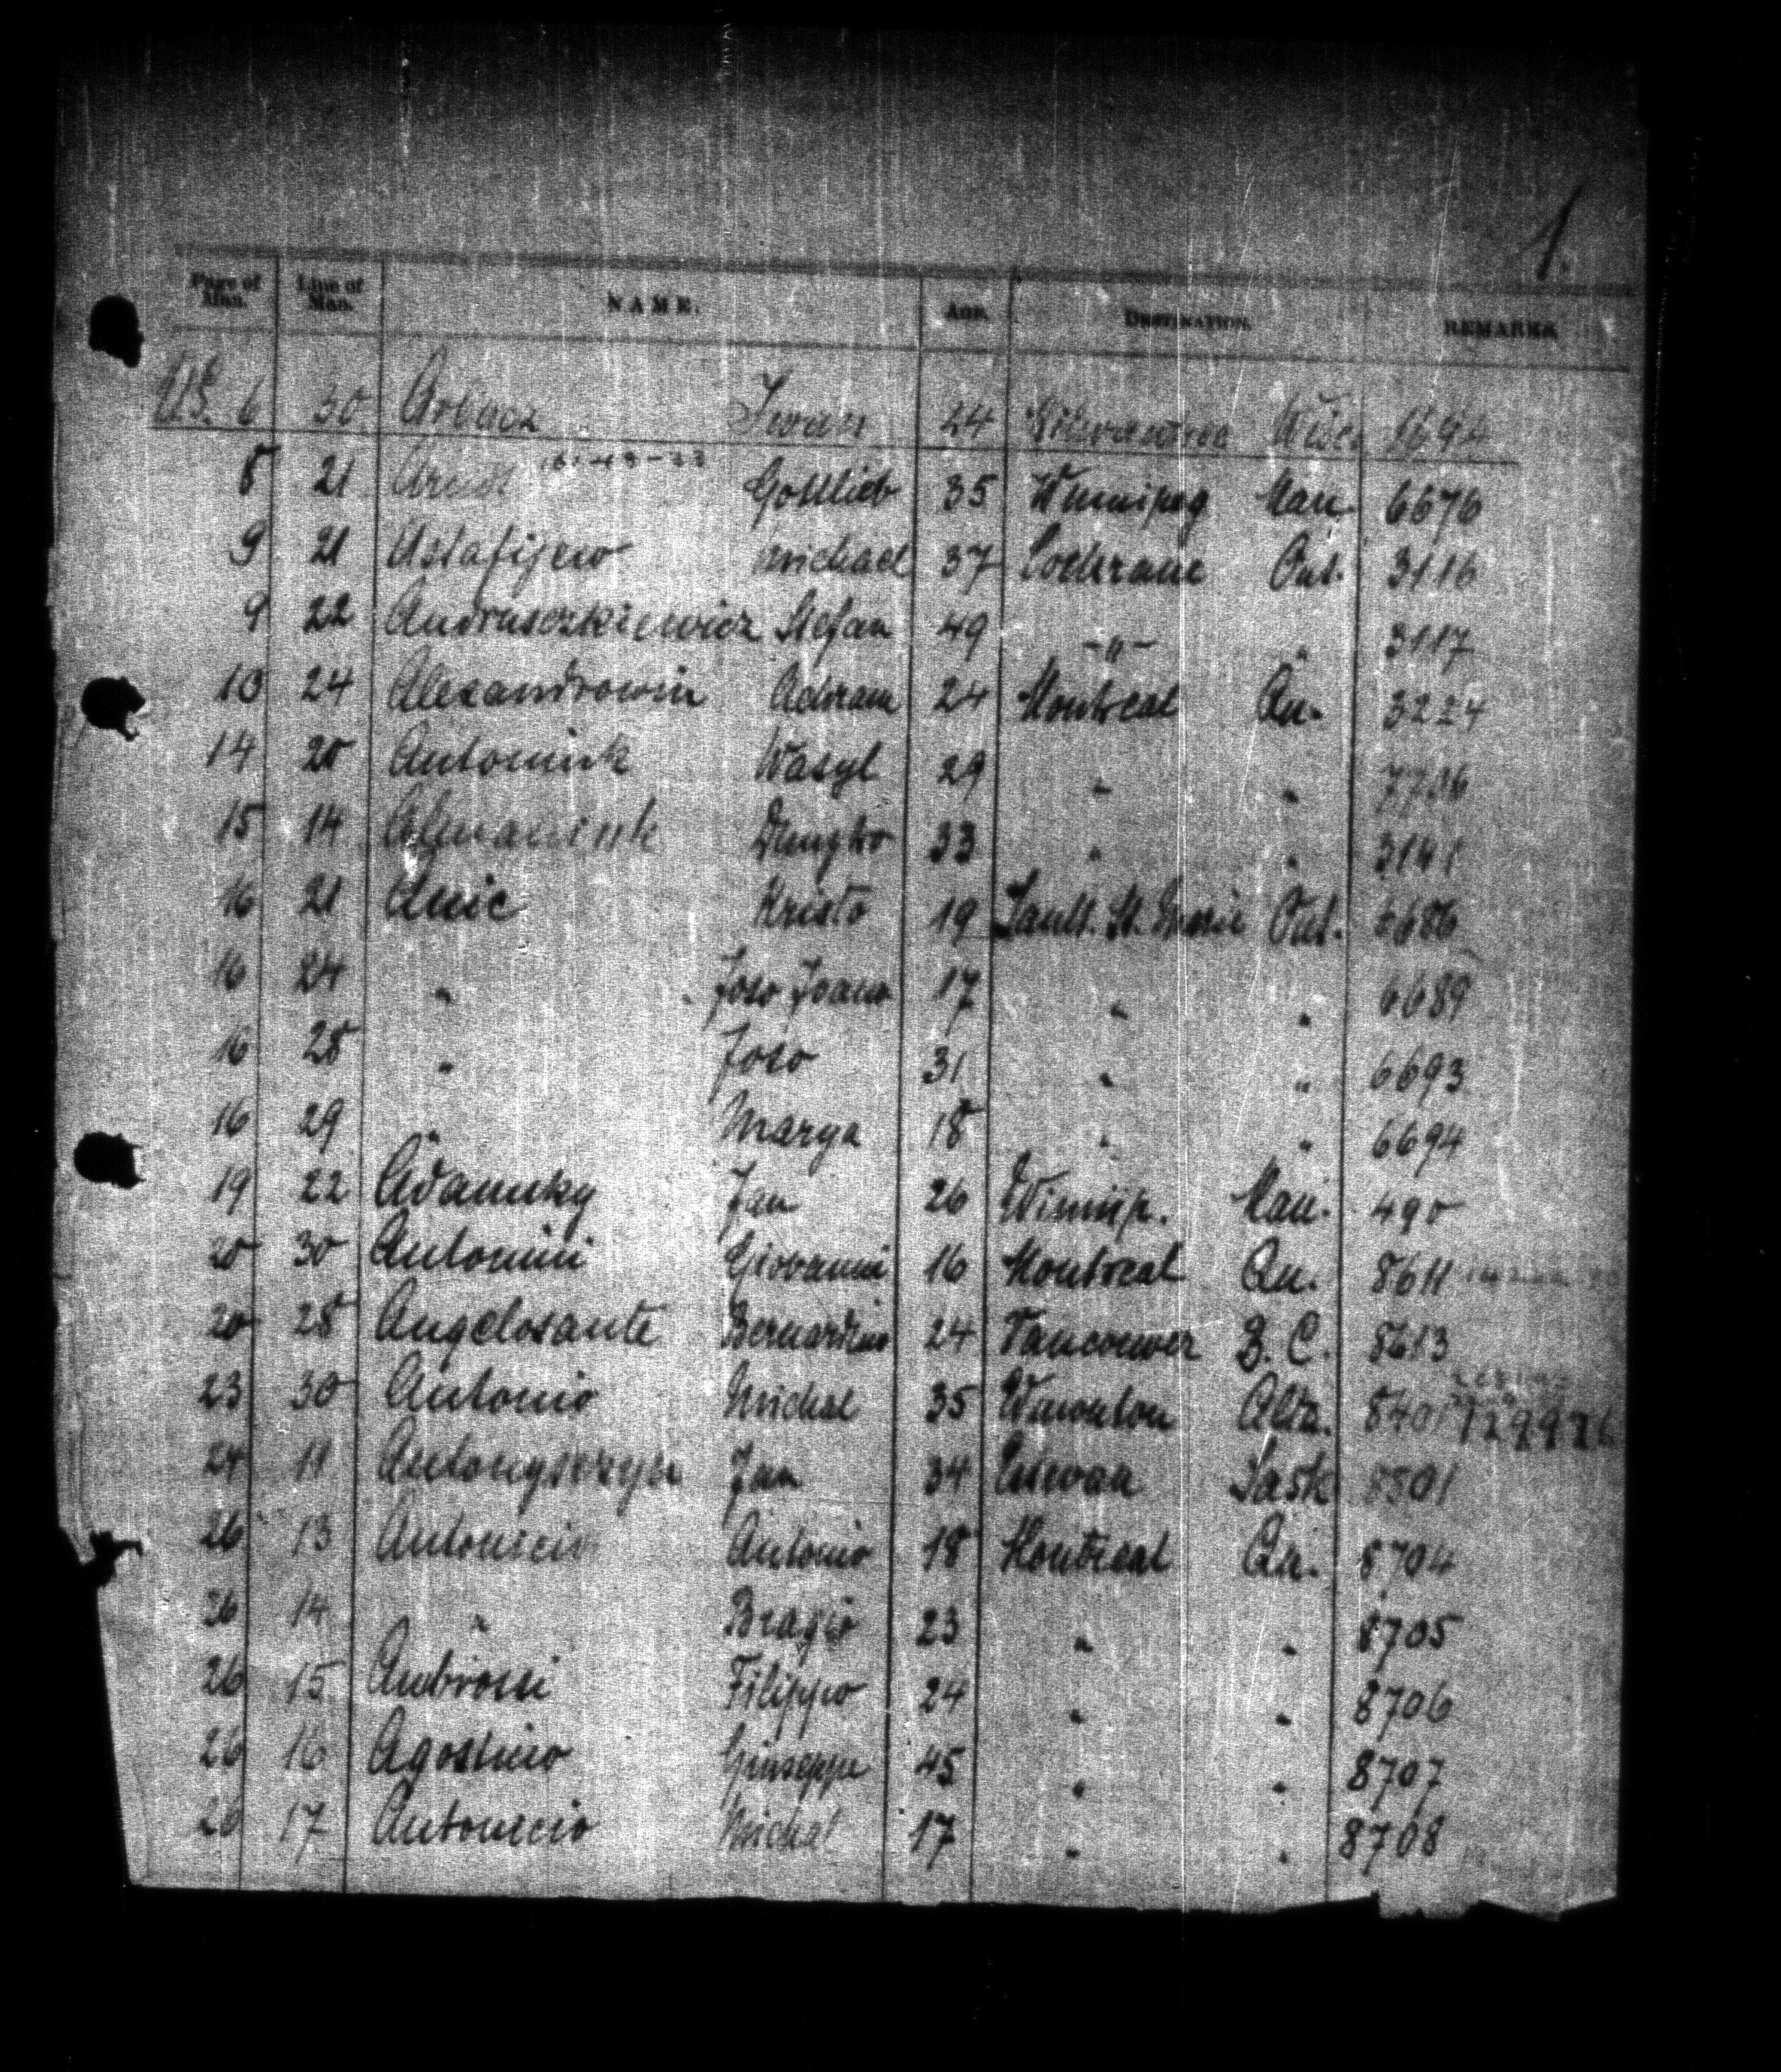 1.
Page of Man. Line of Man. NAME. AGE. DESTINATION. REMARKS
U.S. 6 30 Iwan 24 Wisc.
8 21 Gottlieb 35 Winnipeg Man. 6676
9 21 Astafijew Michael 37 Cochrane Ont. 3116
9 22 Andrusczkiewicz Stefan 49 -"- " 3117
10 24 Alexandrowin Adram 24 Montreal Qu. 3224
14 20 Antoniuk Wasyl 29 " "
15 14 Dmytro 33 " " 3141
16 21 Anic Kristo 19 Sault. St. Marie Ont. 6686
16 24 " Joso Joano 17 " " 6689
16 28 " Joso 31 " " 6693
16 29 " Marya 18 " " 6694
19 22 Adamsky Jan 26 Winnip. Man. 490
20 30 Antonini Giovanni 16 Montreal Qu. 8611
20 28 Angelosante Bernardino 24 Vancouver B.C. 8613
23 30 Antonio Michal 35 Alta.
24 11 Jan 34 Estevan Sask 8501
26 13 Antonio 18 Montreal Qu. 8704
26 14 " Bragio 23 " " 8705
26 15 Ambrosi Filippo 24 " " 8706
26 16 Agostino Giuseppe 45 " " 8707
26 17 Antonicio Michal 17 " " 8708